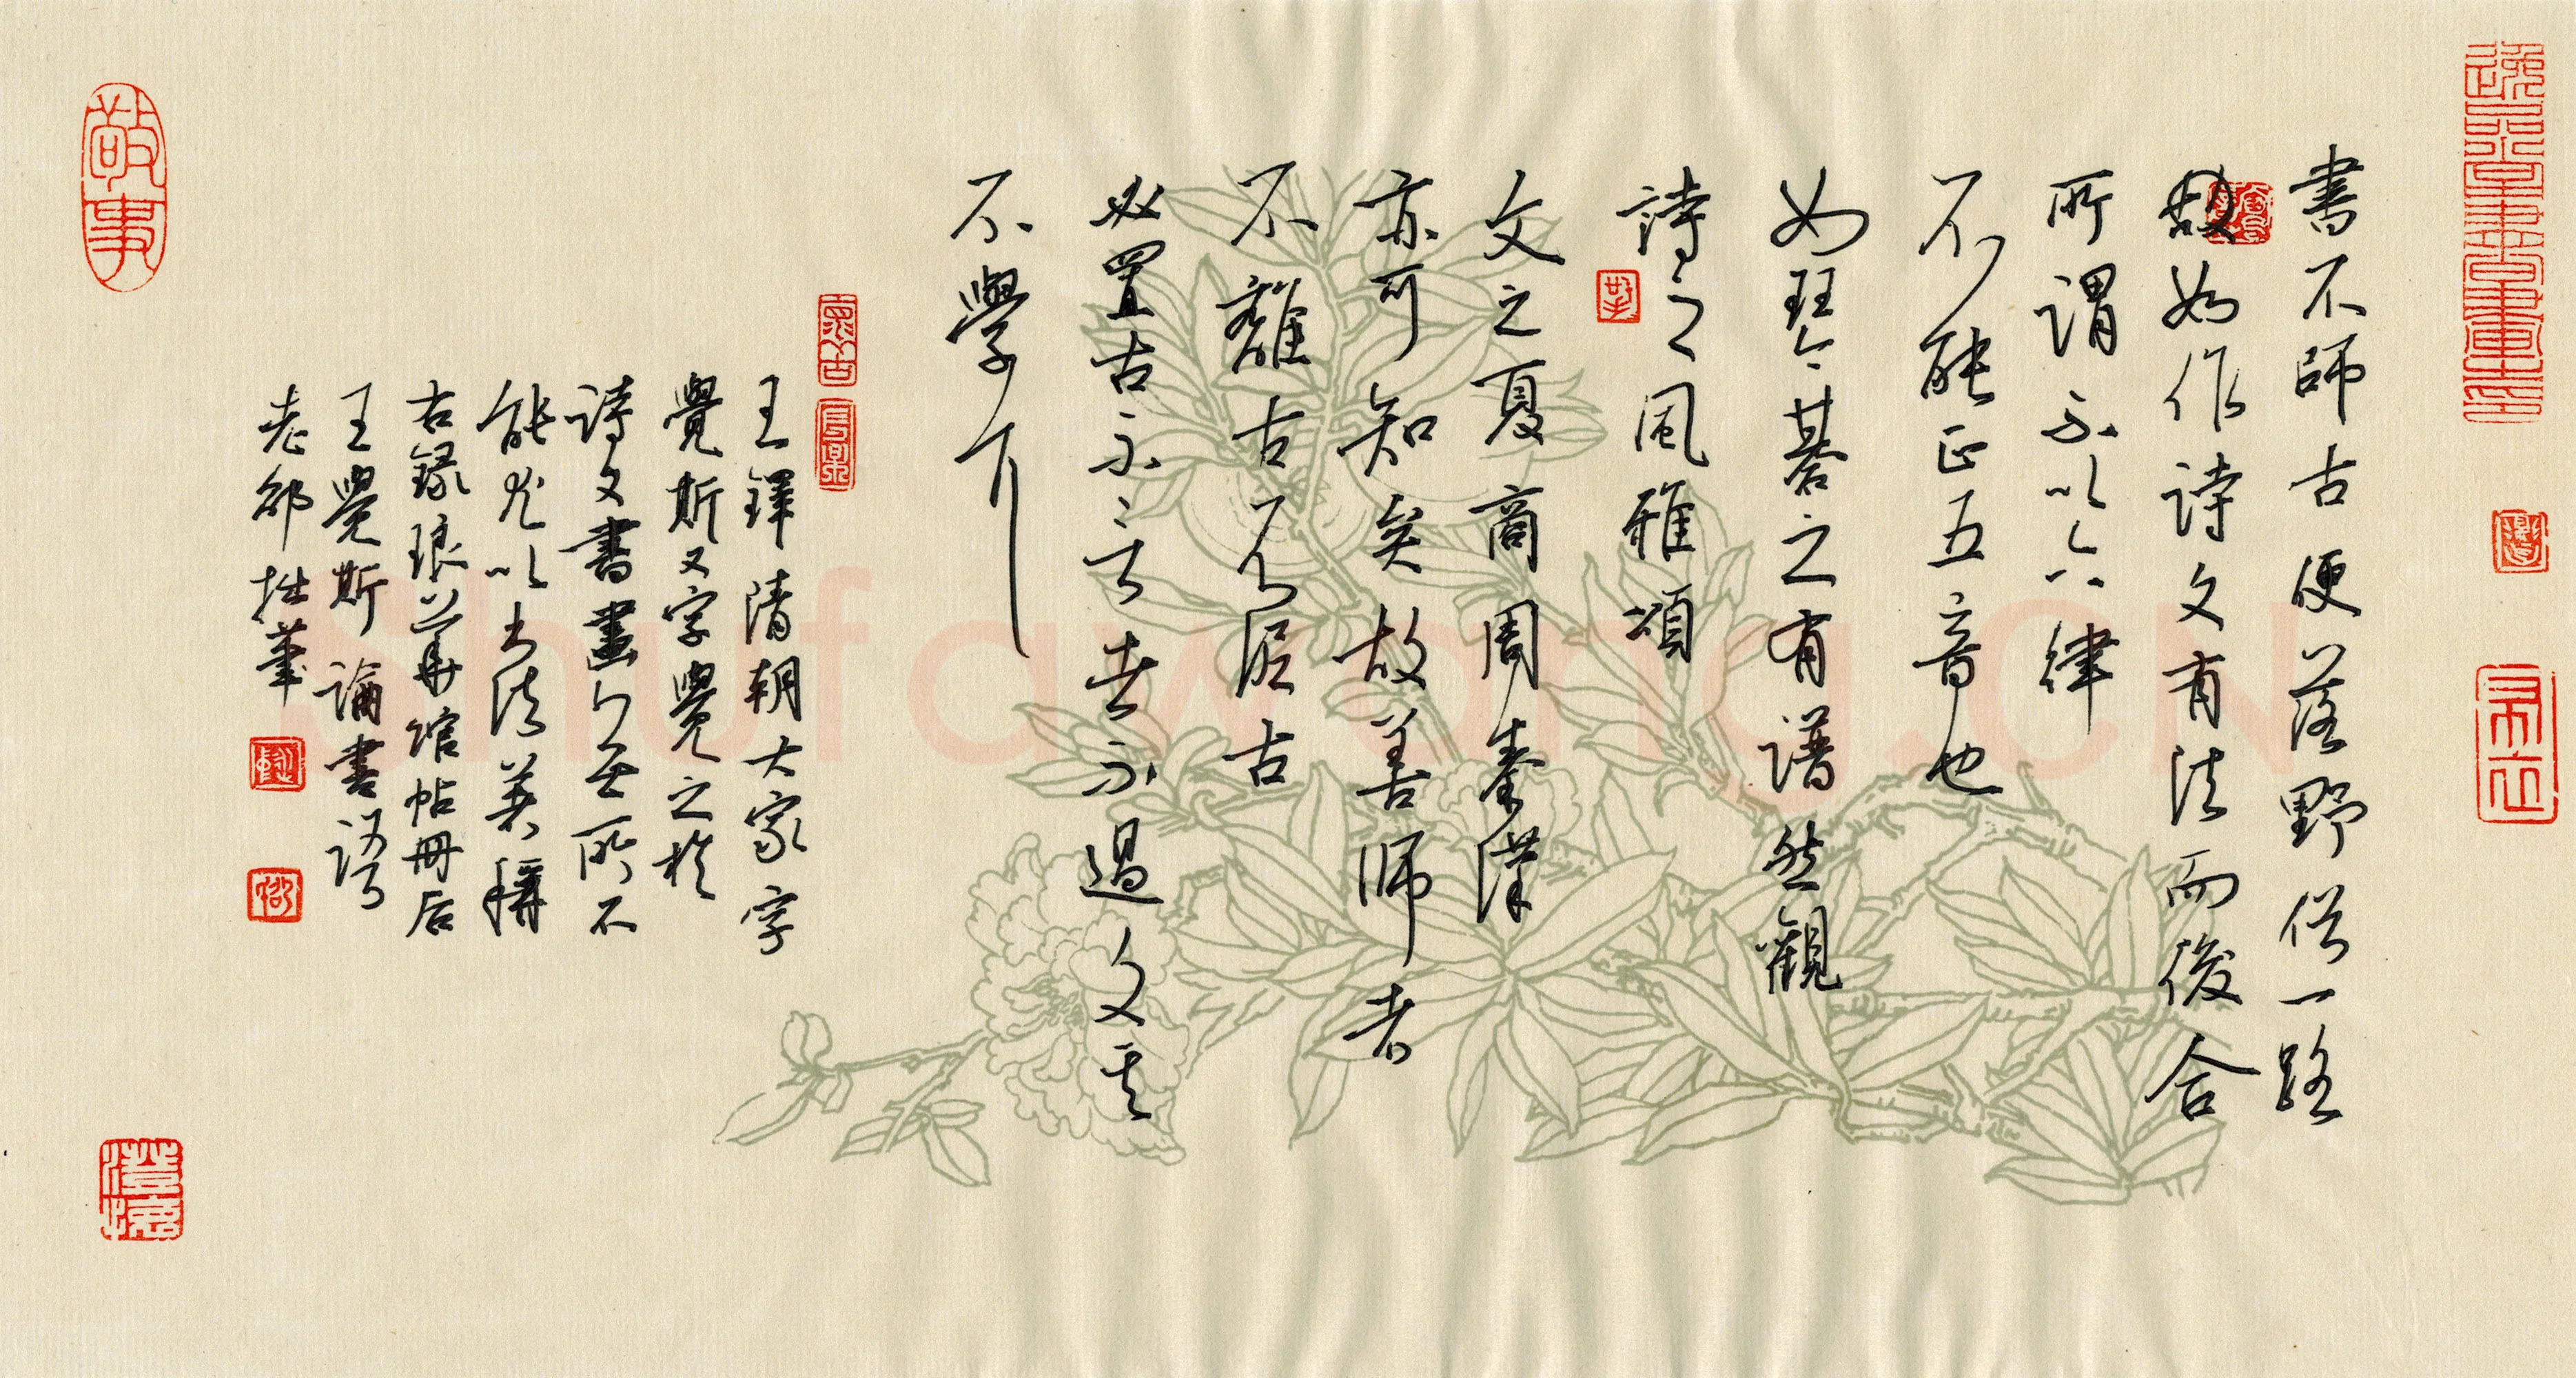 書不師古便落野俗一路
故如作詩文有法而後合
所謂不以六律
不能正五音也
如琴棊之有譜然觀
詩之風雅頌
文之夏商周秦漢
亦可知矣故善師者
不離古不泥古
必置古不言者不過文其
不學耳
王鐸清朝大家字
覺斯又字覺之於
詩文書畫無所不
能尤以書法著稱
右錄琅華館帖冊后
王覺斯論書語
老邹拙筆
敬事
shufawang.CN